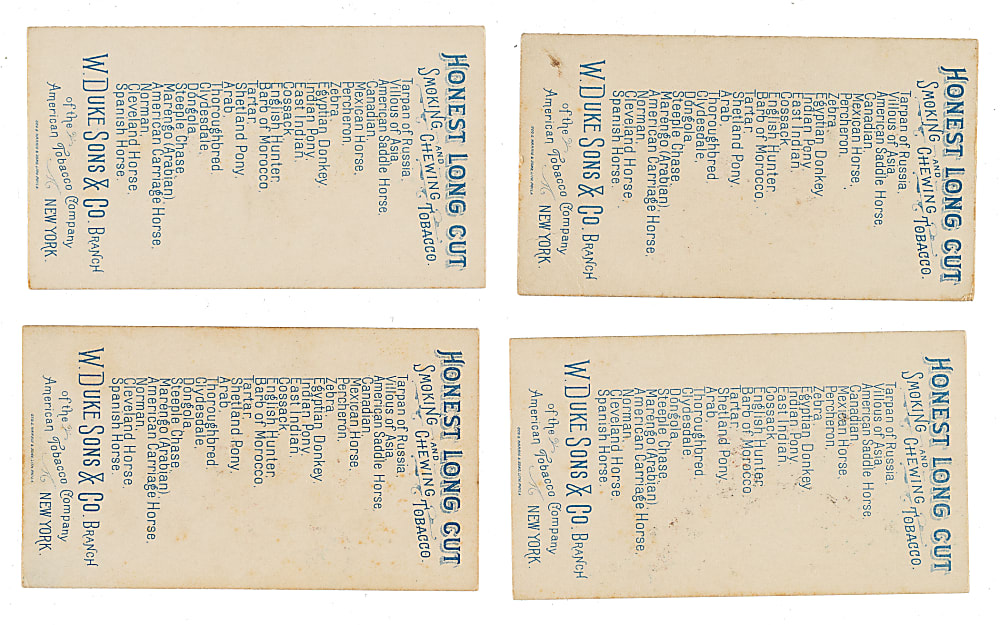 HONEST LONG CUT
SMOKING AND CHEWING TOBACCO.
Tarpan of Russia.
Villous of Asia.
American Saddle Horse.
Canadian.
Mexican Horse.
Percheron.
Zebra.
Egyptian Donkey.
Indian Pony.
East Indian.
Cossack.
English Hunter.
Barb of Morocco.
Tartar.
Shetland Pony.
Arab.
Thoroughbred.
Clydesdale.
Dongola.
Steeple Chase.
Marengo (Arabian).
American Carriage Horse.
Norman.
Cleveland Horse.
Spanish Horse.
W. DUKE SONS & CO. BRANCH
of the
American Tobacco Company
NEW YORK.
HONEST LONG CUT
SMOKING AND CHEWING TOBACCO.
Tarpan of Russia.
Villous of Asia.
American Saddle Horse.
Canadian.
Mexican Horse.
Percheron.
Zebra.
Egyptian Donkey.
Indian Pony.
East Indian.
Cossack.
English Hunter.
Barb of Morocco.
Tartar.
Shetland Pony.
Arab.
Thoroughbred.
Clydesdale.
Dongola.
Steeple Chase.
Marengo (Arabian).
American Carriage Horse.
Norman.
Cleveland Horse.
Spanish Horse.
W. DUKE SONS & CO. BRANCH
of the
American Tobacco Company
NEW YORK.
HONEST LONG CUT
SMOKING AND CHEWING TOBACCO.
Tarpan of Russia.
Villous of Asia.
American Saddle Horse.
Canadian.
Mexican Horse.
Percheron.
Zebra.
Egyptian Donkey.
Indian Pony.
East Indian.
Cossack.
English Hunter.
Barb of Morocco.
Tartar.
Shetland Pony.
Arab.
Thoroughbred.
Clydesdale.
Dongola.
Steeple Chase.
Marengo (Arabian).
American Carriage Horse.
Norman.
Cleveland Horse.
Spanish Horse.
W. DUKE SONS & CO. BRANCH
of the
American Tobacco Company
NEW YORK.
HONEST LONG CUT
SMOKING AND CHEWING TOBACCO.
Tarpan of Russia.
Villous of Asia.
American Saddle Horse.
Canadian.
Mexican Horse.
Percheron.
Zebra.
Egyptian Donkey.
Indian Pony.
East Indian.
Cossack.
English Hunter.
Barb of Morocco.
Tartar.
Shetland Pony.
Arab.
Thoroughbred.
Clydesdale.
Dongola.
Steeple Chase.
Marengo (Arabian).
American Carriage Horse.
Norman.
Cleveland Horse.
Spanish Horse.
W. DUKE SONS & CO. BRANCH
of the
American Tobacco Company
NEW YORK.